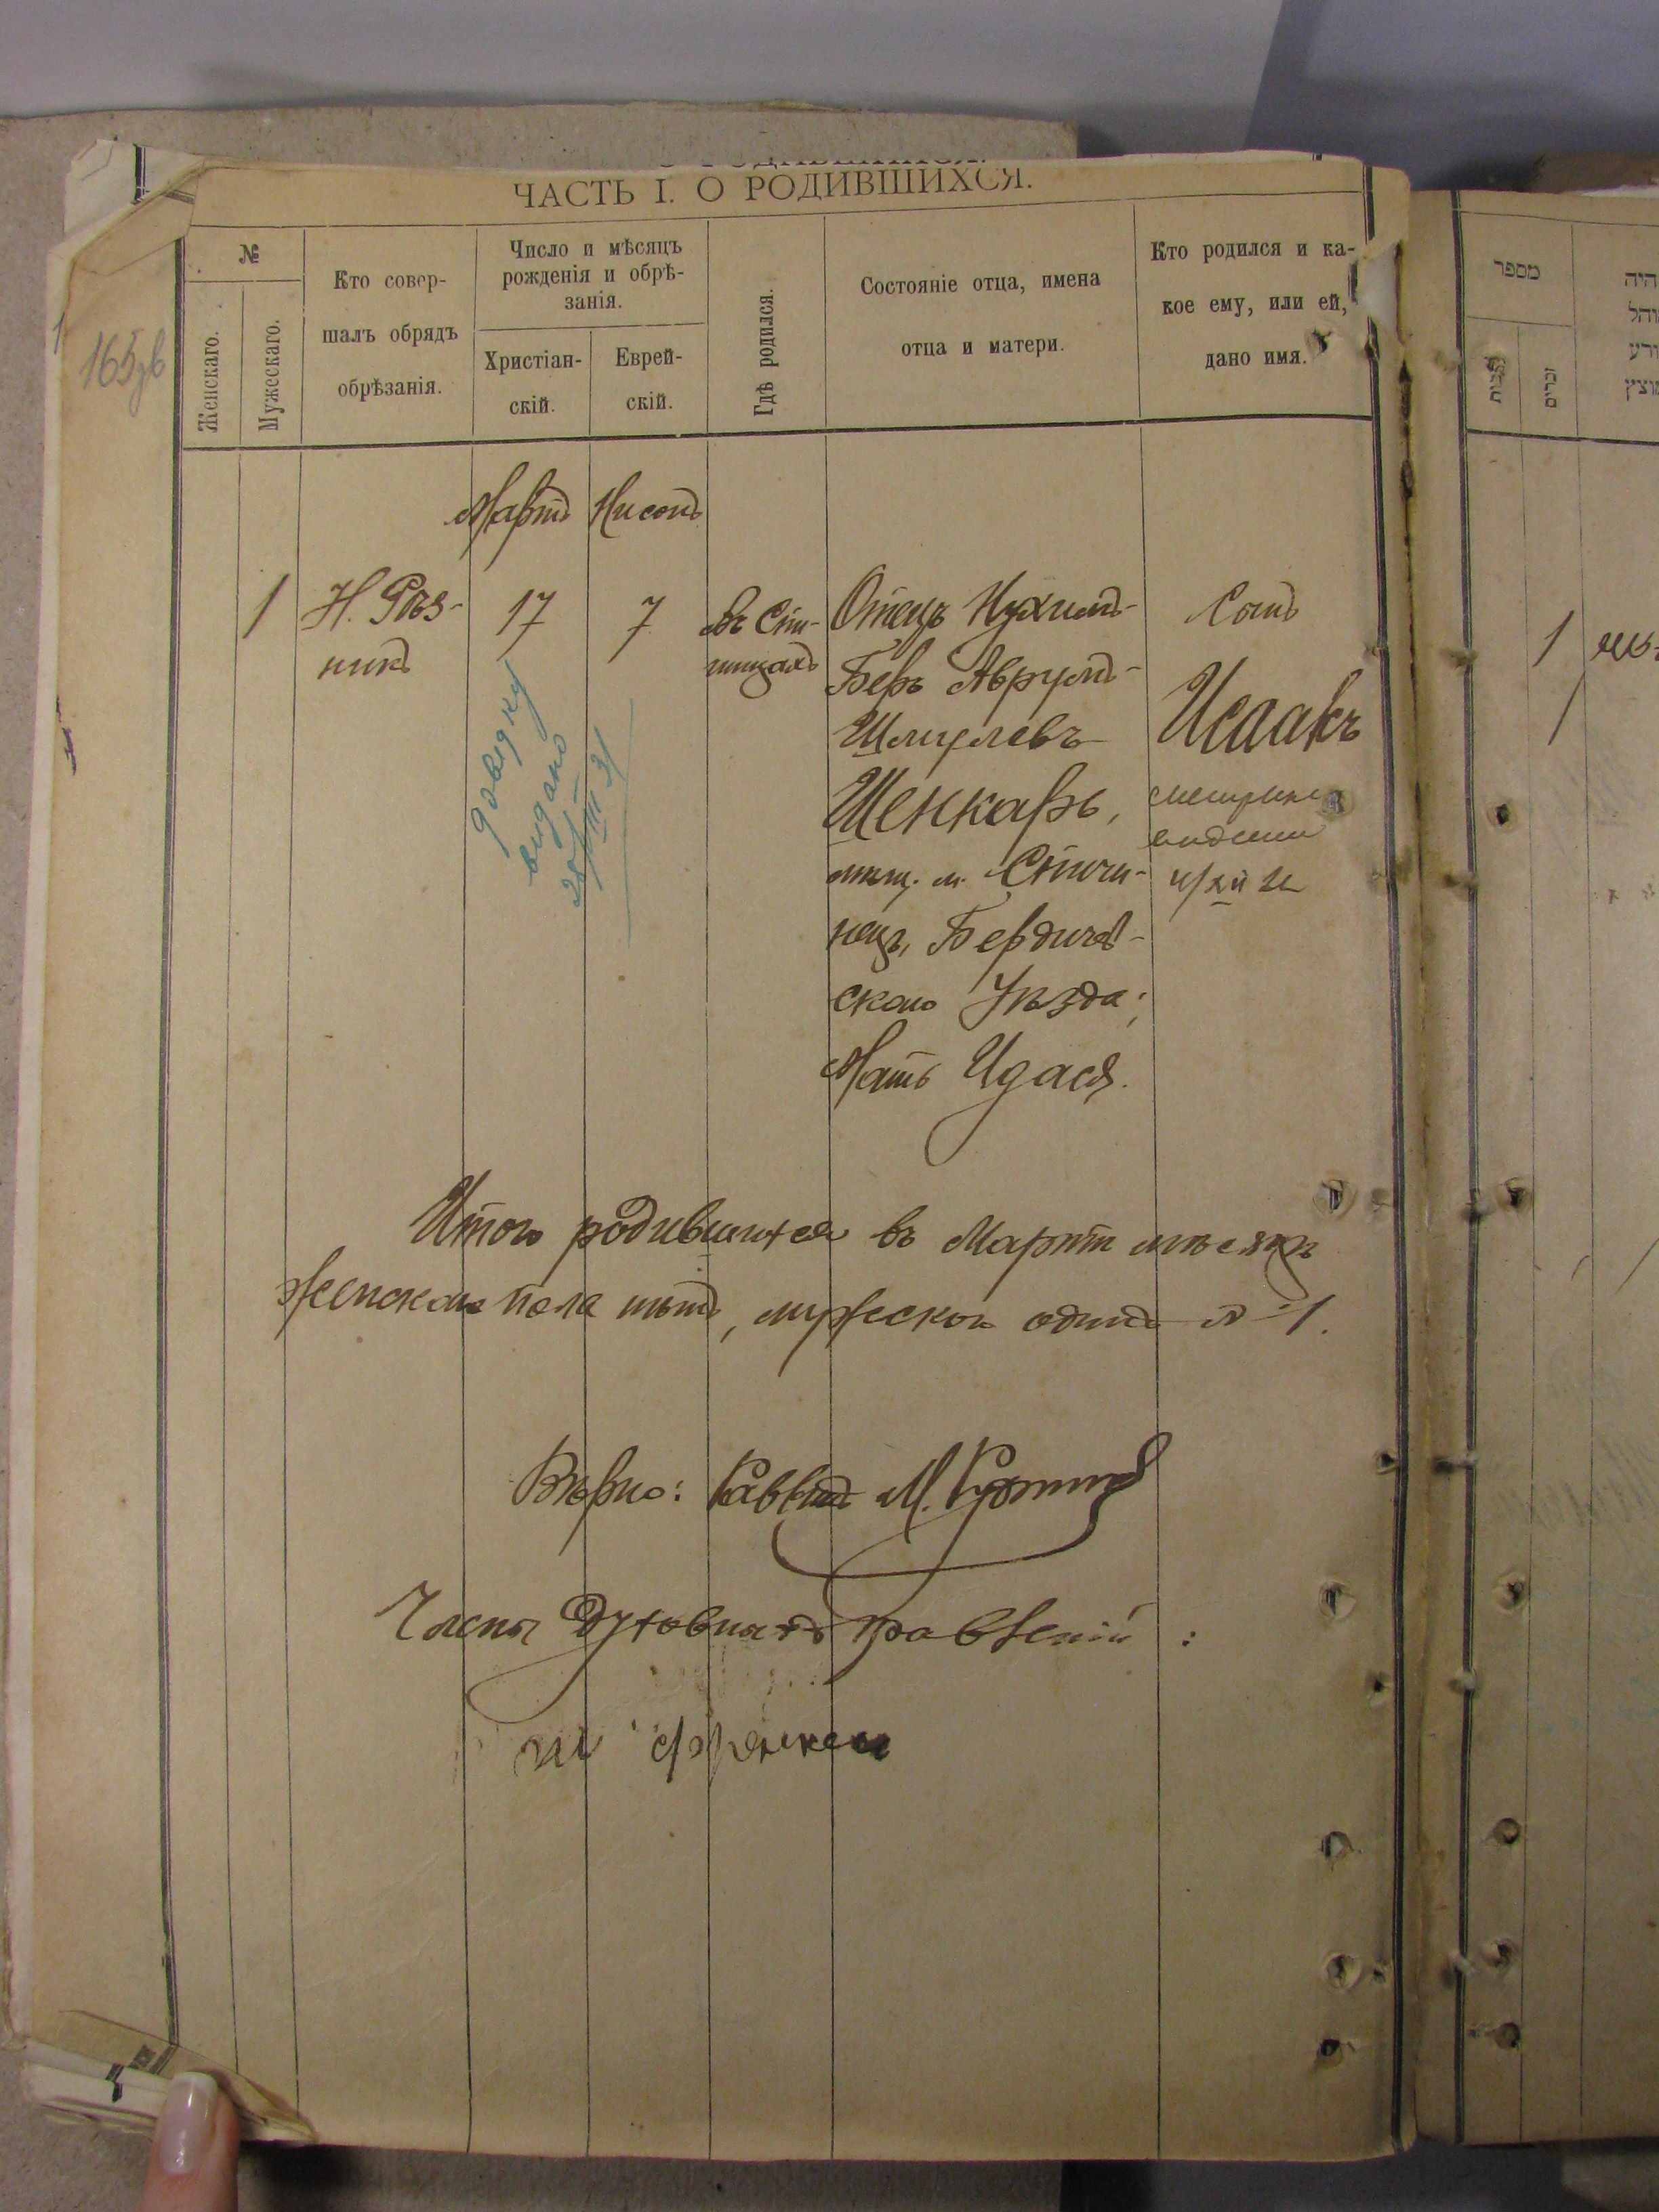 ЧАСТЬ I. О РОДИВШИХСЯ.
№
Женскаго.
Мужескаго.
Кто совер-
шалъ обрядъ
обрѣзанія.
Число и мѣсяцъ
рожденія и обрѣ-
занія.
Христіан-
скій.
Еврей-
скій.
Гдѣ родился.
Состояніе отца, имена
отца и матери.
Кто родился и ка-
кое ему, или ей,
дано имя.
165зв
Мартъ Нисонъ
1
Н. Рѣз-
никъ
17
7
въ Сти-
Отецъ Нухимъ-
Беръ Аврумъ-
Шмулевъ
Шенкаръ,
мѣщ. м. Стичи-
нецъ, Бердичев-
скаго Уѣзда;
Мать Идася.
Сынъ
Исаакъ
довидку
видано
28/III 31
Итого родившихся въ Мартѣ мѣсяцѣ
женскаго пола нѣтъ, мужскаго одинъ 1.
Вѣрно: Раввинъ М.
Члены Духовныхъ Правленій:
מספר
זכרים
1
1